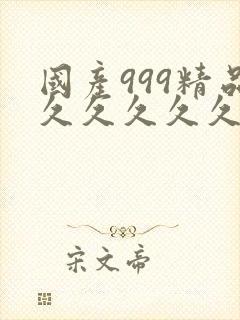 國産999精品
久久久久久
宋文帝